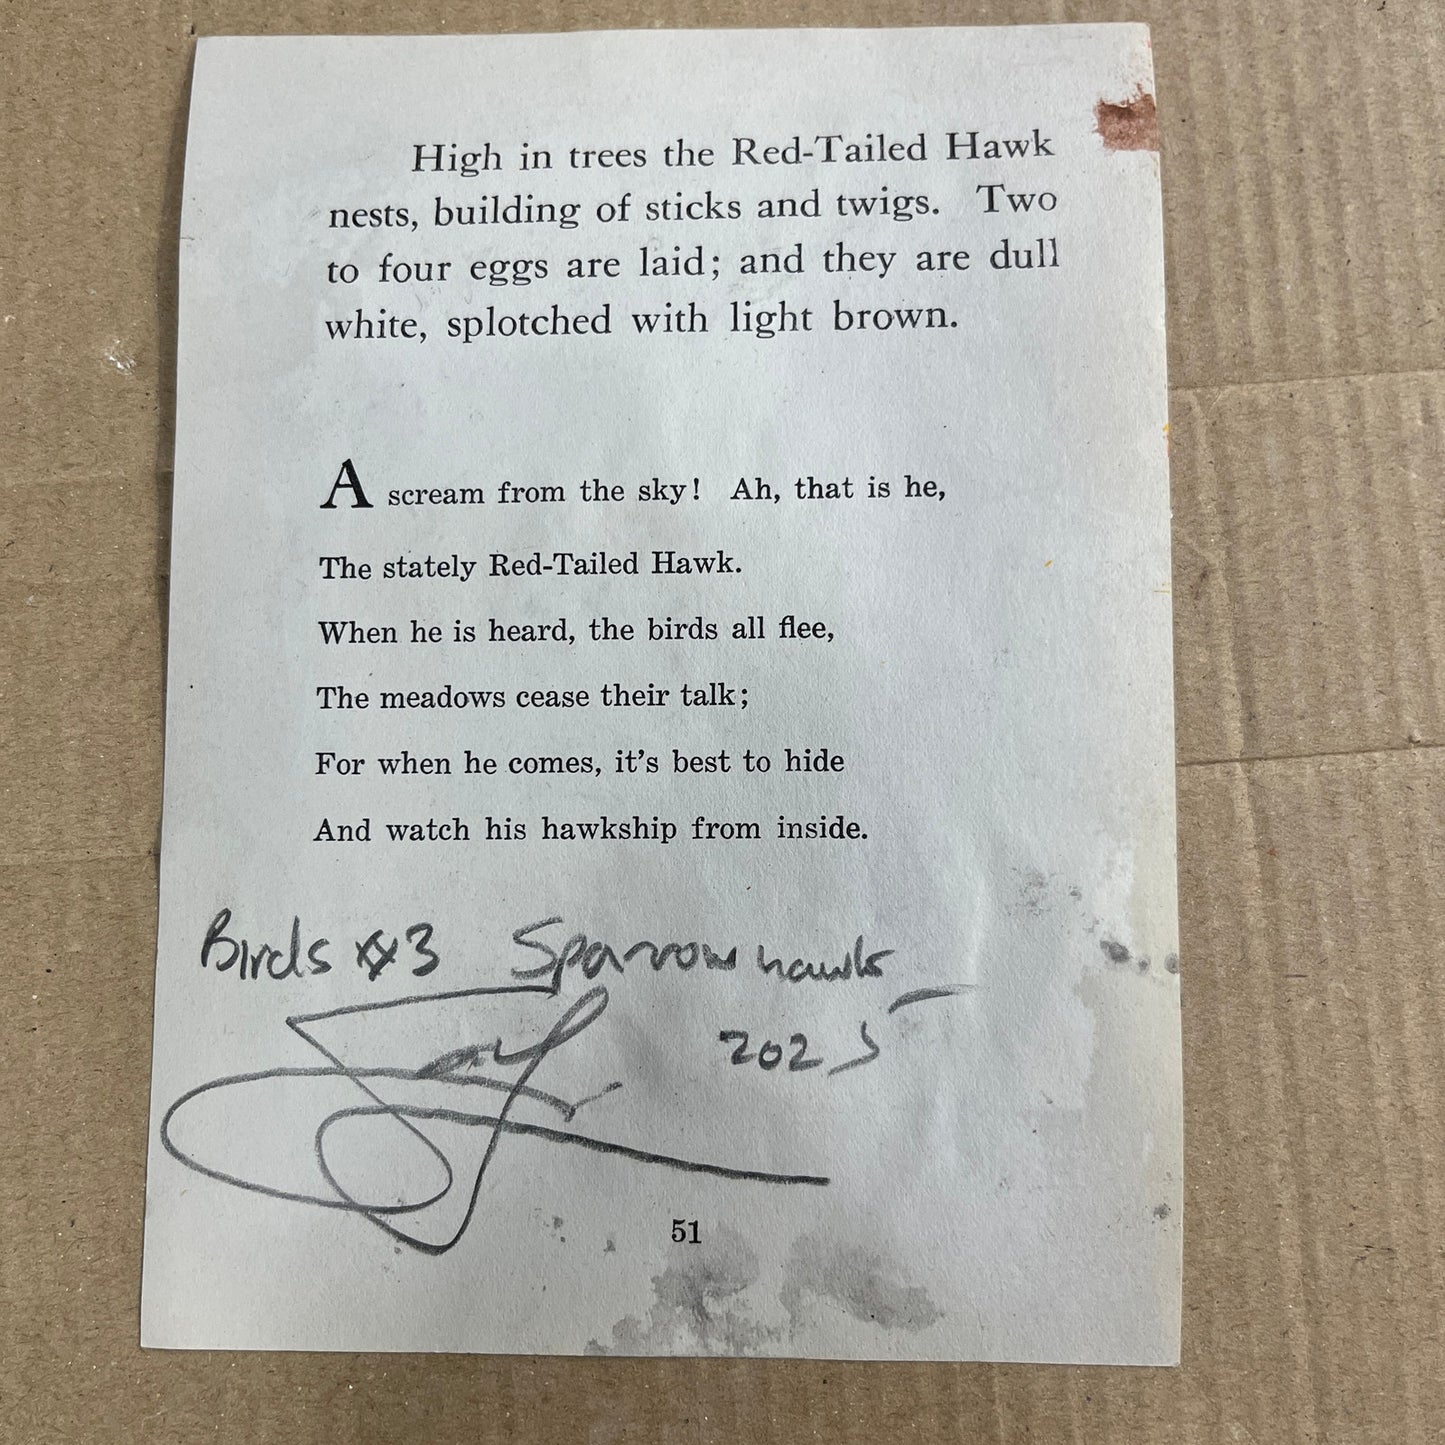 High in trees the Red-Tailed Hawk
nests, building of sticks and twigs. Two
to four eggs are laid; and they are dull
white, splotched with light brown.
A scream from the sky! Ah, that is he,
The stately Red-Tailed Hawk.
When he is heard, the birds all flee,
The meadows cease their talk;
For when he comes, it's best to hide
And watch his hawkship from inside.
Birds #3 Sparrow hawk
2025
51